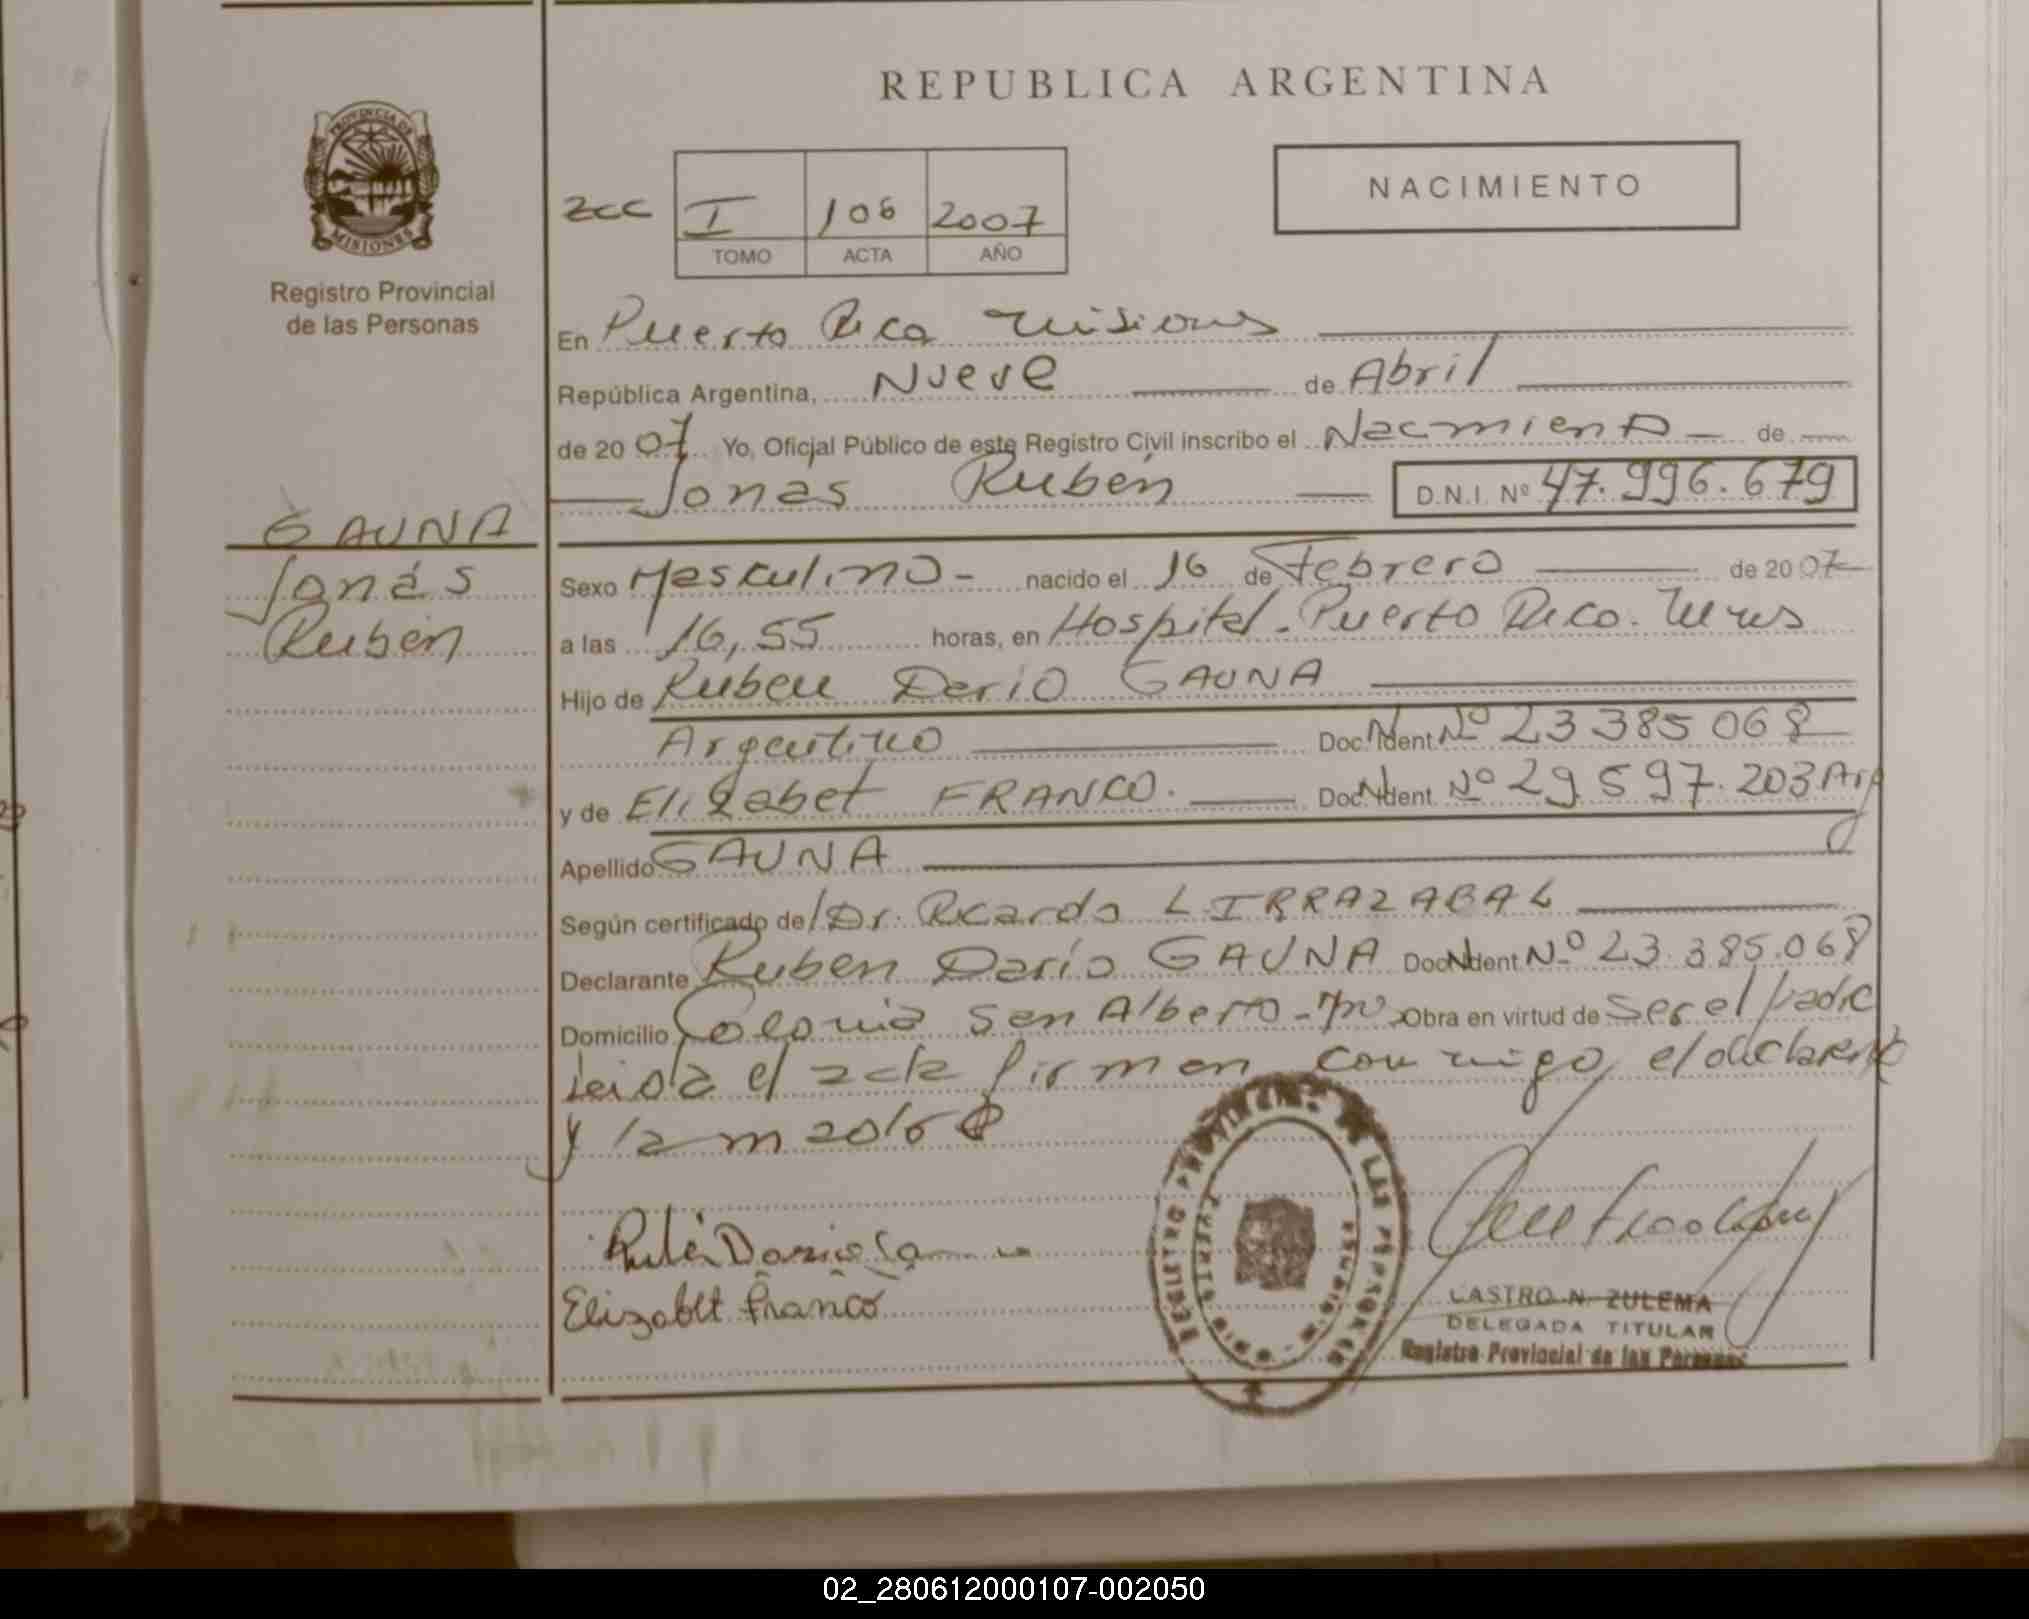 REPUBLICA ARGENTINA
PROVINCIA DE MISIONES
Registro Provincial
de las Personas
NACIMIENTO
zcc I 106 2007
TOMO ACTA AÑO
En Puerto Rico Misiones
República Argentina, Nueve de Abril
de 2007 Yo, Oficial Público de este Registro Civil inscribo el Nacmiento de
Jonas Rubén D.N.I. Nº 47.996.679
GAUNA
Jonás
Rubén
Sexo Masculino - nacido el 16 de Febrero de 2007
a las 16,55 horas, en Hospital - Puerto Rico.
Hijo de Ruben Dario GAUNA
Argentino Doc. Ident. Nº 23 385 068
y de Elizabet FRANCO. Doc. Ident. Nº 29 597.203 Arg
Apellido GAUNA
Según certificado de Dr. Ricardo LIRRAZABAL
Declarante Ruben Darío GAUNA Doc. Ident. Nº 23.385.068
Domicilio Colonia San Alberto - Obra en virtud de ser el padre
Leida el acta firman conmigo el declarante
y la madre
Rubén Dario Gauna
Elizabet Franco
REGISTRO PROVINCIAL DE LAS PERSONAS
CASTRO N. ZULEMA
DELEGADA TITULAR
Registro Provincial de las Personas
02_280612000107-002050